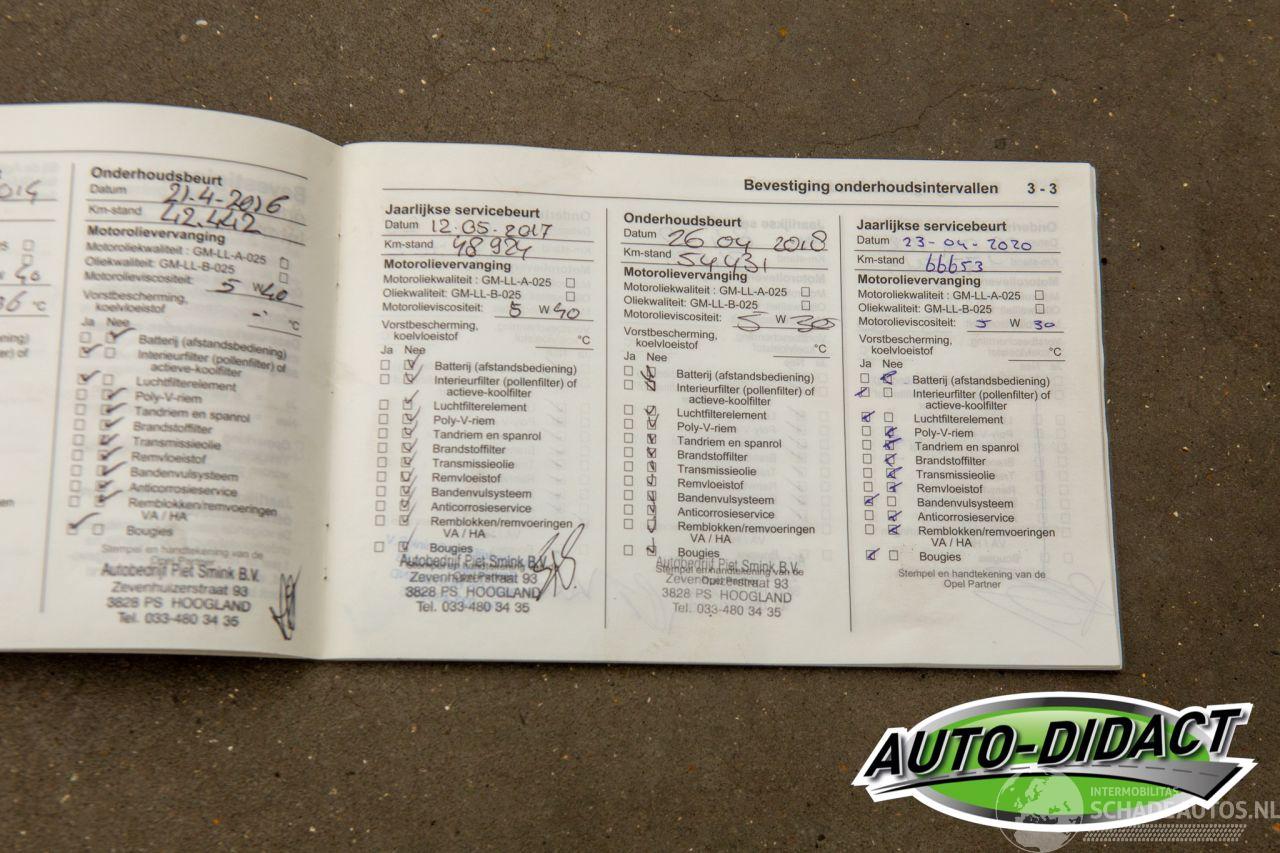 Onderhoudsbeurt
Datum 21-4-2016
Km-stand 42.442
Motorolievervanging
Motoroliekwaliteit : GM-LL-A-025
Oliekwaliteit: GM-LL-B-025
Motorolieviscositeit: 5 W 40
Vorstbescherming,
koelvloeistof °C
Ja Nee
Batterij (afstandsbediening)
Interieurfilter (pollenfilter) of
actieve-koolfilter
Luchtfilterelement
Poly-V-riem
Tandriem en spanrol
Brandstoffilter
Transmissieolie
Remvloeistof
Bandenvulsysteem
Anticorrosieservice
Remblokken/remvoeringen
VA / HA
Bougies
Stempel en handtekening van de
Opel Partner
Autobedrijf Piet Smink B.V.
Zevenhuizerstraat 93
3828 PS HOOGLAND
Tel. 033-480 34 35
Bevestiging onderhoudsintervallen 3 - 3
Jaarlijkse servicebeurt
Datum 12.05-2017
Km-stand 48924
Motorolievervanging
Motoroliekwaliteit : GM-LL-A-025
Oliekwaliteit: GM-LL-B-025
Motorolieviscositeit: 5 W 40
Vorstbescherming,
koelvloeistof °C
Ja Nee
Batterij (afstandsbediening)
Interieurfilter (pollenfilter) of
actieve-koolfilter
Luchtfilterelement
Poly-V-riem
Tandriem en spanrol
Brandstoffilter
Transmissieolie
Remvloeistof
Bandenvulsysteem
Anticorrosieservice
Remblokken/remvoeringen
VA / HA
Bougies
Autobedrijf Piet Smink B.V.
Zevenhuizerstraat 93
3828 PS HOOGLAND
Tel. 033-480 34 35
Onderhoudsbeurt
Datum 26 04 2018
Km-stand 54431
Motorolievervanging
Motoroliekwaliteit : GM-LL-A-025
Oliekwaliteit: GM-LL-B-025
Motorolieviscositeit: 5 W 30
Vorstbescherming,
koelvloeistof °C
Ja Nee
Batterij (afstandsbediening)
Interieurfilter (pollenfilter) of
actieve-koolfilter
Luchtfilterelement
Poly-V-riem
Tandriem en spanrol
Brandstoffilter
Transmissieolie
Remvloeistof
Bandenvulsysteem
Anticorrosieservice
Remblokken/remvoeringen
VA / HA
Bougies
Stempel en handtekening van de
Opel Partner
Autobedrijf Piet Smink B.V.
Zevenhuizerstraat 93
3828 PS HOOGLAND
Tel. 033-480 34 35
Jaarlijkse servicebeurt
Datum 23-04-2020
Km-stand 66653
Motorolievervanging
Motoroliekwaliteit : GM-LL-A-025
Oliekwaliteit: GM-LL-B-025
Motorolieviscositeit: 5 W 30
Vorstbescherming,
koelvloeistof °C
Ja Nee
Batterij (afstandsbediening)
Interieurfilter (pollenfilter) of
actieve-koolfilter
Luchtfilterelement
Poly-V-riem
Tandriem en spanrol
Brandstoffilter
Transmissieolie
Remvloeistof
Bandenvulsysteem
Anticorrosieservice
Remblokken/remvoeringen
VA / HA
Bougies
Stempel en handtekening van de
Opel Partner
AUTO-DIDACT
INTERMOBILITAS
SCHADEAUTOS.NL